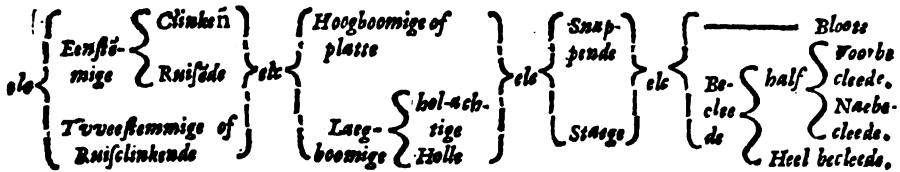 els
Eenstē-
mige
Clinkeñ
Ruisēde
Tvveestemmige of
Ruisclinkende
elc
Hoogboomige of
platte
Laeg-
boomige
hol-ach-
tige
Holle
elc
Snap-
pende
Staege
elc
Bloote
Be-
clee
de
half
Voorbe
cleede.
Naebe-
cleede.
Heel becleede.